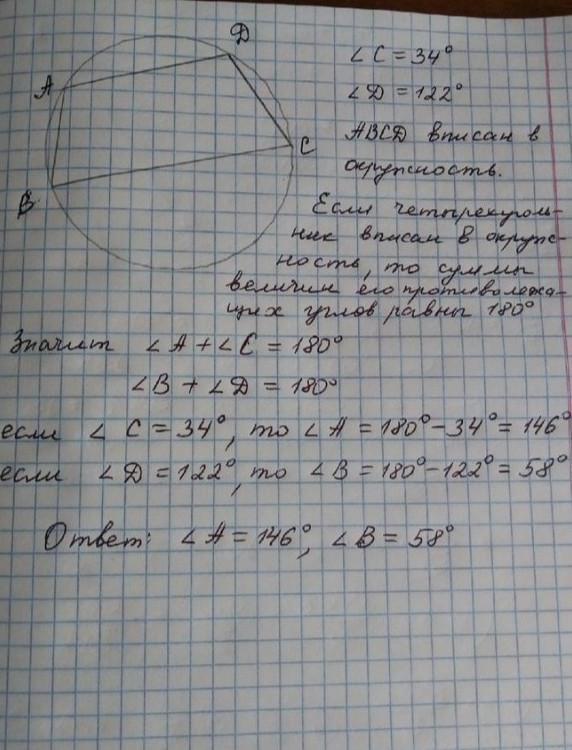 D
A
C
B
∠C = 34°
∠D = 122°
ABCD вписан в
окружность.
Если четырехуголь-
ник вписан в окруж-
ность, то суммы
величин его противолежа-
щих углов равны 180°
Значит ∠A + ∠C = 180°
∠B + ∠D = 180°
если ∠C = 34°, то ∠A = 180° - 34° = 146°
если ∠D = 122°, то ∠B = 180° - 122° = 58°
Ответ: ∠A = 146°, ∠B = 58°